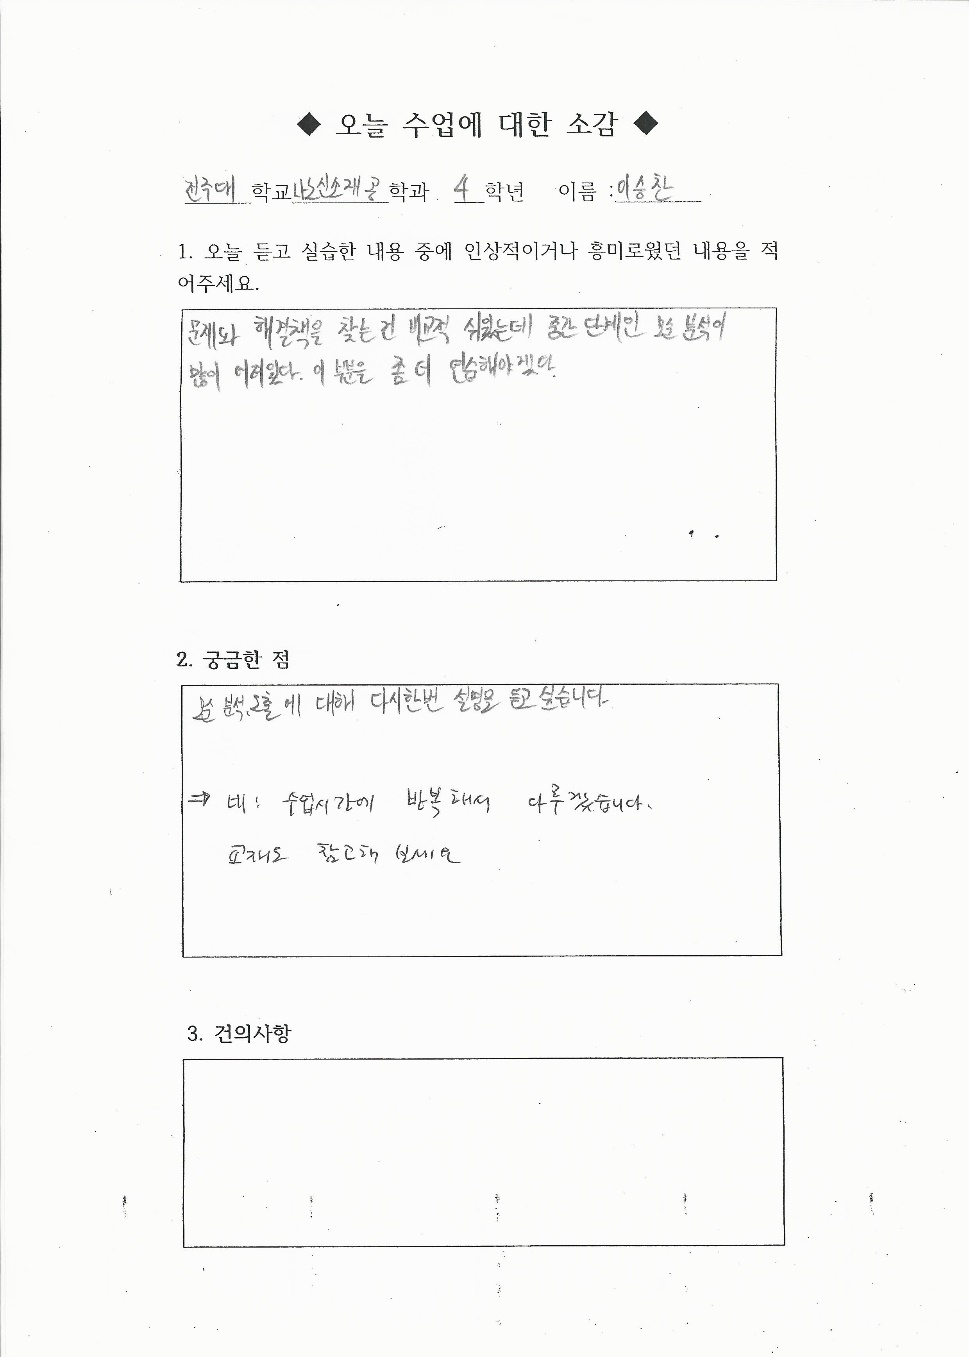 ◆ 오늘 수업에 대한 소감 ◆
전주대 학교 나노신소재공 학과 4 학년 이름 : 이승찬
1. 오늘 듣고 실습한 내용 중에 인상적이거나 흥미로웠던 내용을 적
어주세요.
문제와 해결책을 찾는 건 비교적 쉬웠는데 중간 단계인 모순 분석이
많이 어려웠다. 이 부분을 좀 더 연습해야겠다.
2. 궁금한 점
모순 분석, 도출에 대해 다시한번 설명을 듣고 싶습니다.
⇒ 네! 수업시간에 반복해서 다루겠습니다.
교재도 참고해 보세요
3. 건의사항